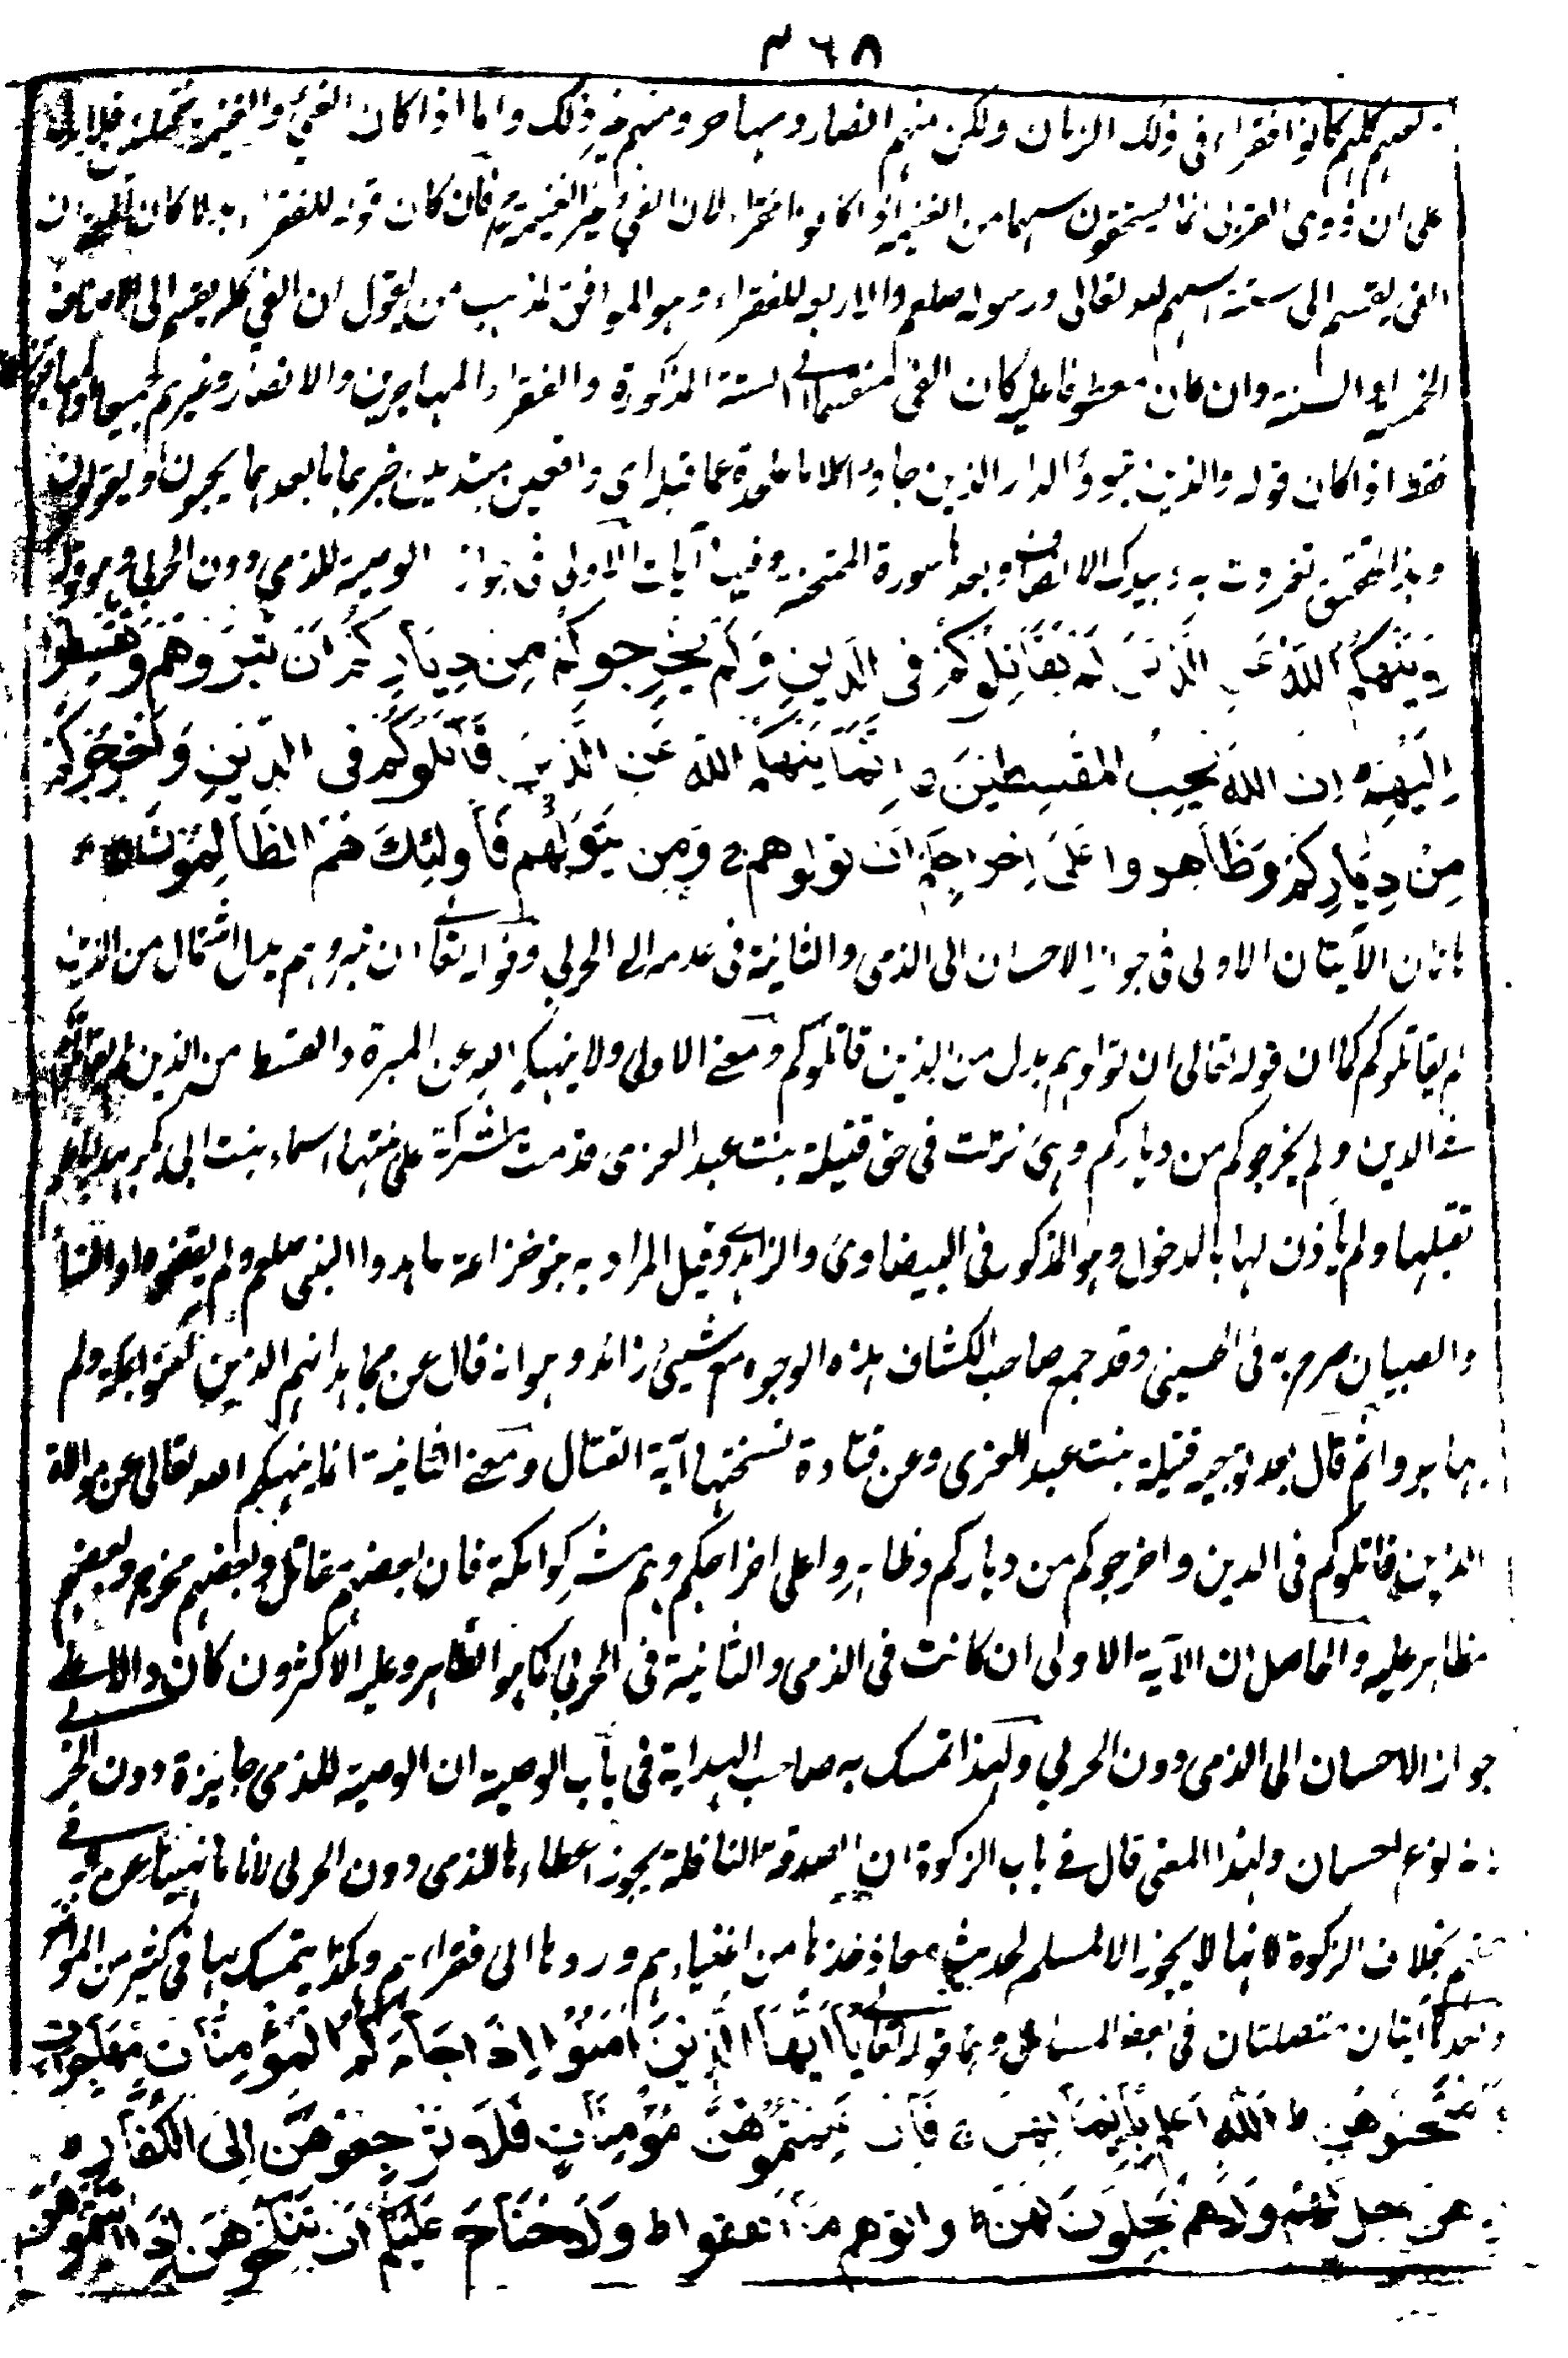 ٣٦٨
كلهم كانوا فقراء فى ذلك الزمان ولكن منهم انصار ومنهم مهاجر ومنهم غير ذلك واما اذا كان الفئ والغنيمة
على ان ذوى القربى انما يستحقون سهما من الغنيمة اذا كانوا فقراء لان الفئ غير الغنيمة فان كان قوله للفقراء بدلا كان
الفئ يقسم الى ستة اسهم لله تعالى ورسوله صلعم والاربعة للفقراء وهو الموافق لمذهب من يقول ان الفئ كله يقسم الى
الخمس او الستة وان كان معطوفا عليه كان الفئ منقسما الى الستة المذكورة والفقراء المهاجرين والانصار وغيرهم جميعا
فقط اذا كان قوله والذين تبوؤ الدار والذين جاؤا كلاما على حدة عما قبله اى واقعين مبتدئين خبرهما ما بعدهما يحبون او يقولون
وهذا تحقيق تفردت به وبعدها سورة الممتحنة وفيها آيات الاولى فى جواز الوصية للذمى دون الحربى وهو قوله
لا ينهٰكم الله عن الذين لم يقاتلوكم فى الدين ولم يخرجوكم من دياركم ان تبروهم وتقسطوا
اليهم ان الله يحب المقسطين انما ينهٰكم الله عن الذين قاتلوكم فى الدين واخرجوكم
من دياركم وظاهروا على اخراجكم ان تولوهم ومن يتولهم فاولئك هم الظالمون
هاتان الآيتان الاولى فى جواز الاحسان الى الذمى والثانية فى عدمه الى الحربى وقوله تعالى ان تبروهم بدل اشتمال من الذين
لم يقاتلوكم كما ان قوله تعالى ان تولوهم بدل من الذين قاتلوكم ومعنى الاولى ولا ينهيكم الله عن المبرة والقسط من الذين لم يقاتلوكم
فى الدين ولم يخرجوكم من دياركم وهى نزلت فى حق قتيلة بنت عبد العزى قدمت مشركة على بنتها اسماء بنت ابى بكر بهدايا فلم
تقبلها ولم يأذن لها بالدخول وهو المذكور فى البيضاوى والزاهدى وقيل المراد به بنو خزاعة عاهدوا النبى صلعم ولم ينقضوه او النساء
والصبيان صرح به فى الحسينى وقد جمع صاحب الكشاف هذه الوجوه مع شيئ زائد وهو انه قال عن مجاهد انهم الذين آمنوا بمكة ولم
يهاجروا ثم قال بعد توجيه قتيلة بنت عبد العزى وعن قتادة نسختها آية القتال ومعنى الثانية انما ينهيكم الله تعالى عن موالاة
الذين قاتلوكم فى الدين واخرجوكم من دياركم وظاهروا على اخراجكم وهم مشركوا مكة فان بعضهم مقاتل وبعضهم مخرج وبعضهم
مظاهر عليه والحاصل ان الآية الاولى ان كانت فى الذمى والثانية فى الحربى كما هو الظاهر وعليه الاكثرون كان دالا على
جواز الاحسان الى الذمى دون الحربى ولهذا تمسك به صاحب الهداية فى باب الوصية ان الوصية للذمى جايزة دون الحربى
لانه نوع احسان ولهذا المعنى قال فى باب الزكوة ان الصدقة النافلة يجوز اعطاءها للذمى دون الحربى لانا نهينا عن
بخلاف الزكوة لانها لا يجوز الا لمسلم لحديث معاذ خذها من اغنياءهم وردها الى فقراءهم وهكذا يتمسك بها فى كثير من المواضع
وبعدها آيتان متصلتان فى بعض المسائل وهما قوله تعالى يا ايها الذين امنوا اذا جاءكم المؤمنات مهاجرات
فامتحنوهن ط الله اعلم بايمانهن فان علمتموهن مؤمنات فلا ترجعوهن الى الكفار
لا هن حل لهم ولا هم يحلون لهن واتوهم ما انفقوا ط ولا جناح عليكم ان تنكحوهن اذا اتيتموهن